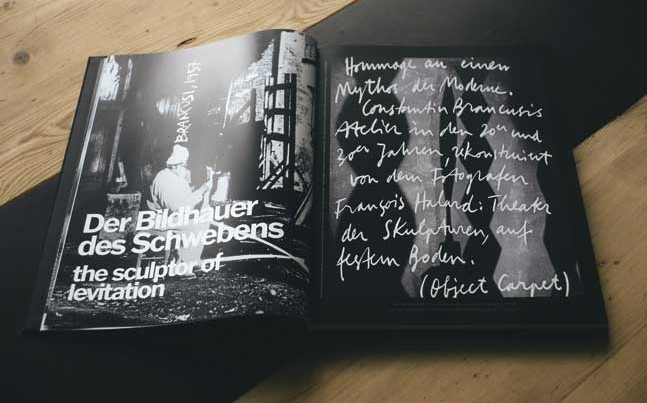 BRANCUSI, 1957
Der Bildhauer
des Schwebens
the sculptor of
levitation
Hommage an einem
Mythos der Moderne.
Constantin Brancusis
Atelier in den 20er und
30er Jahren, rekonstruiert
von dem Fotografen
François Halard: Theater
der Skulpturen, auf
festem Boden.
(Object Carpet)